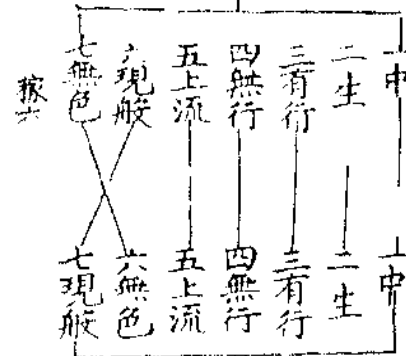 一中
二生
三有行
四無行
五上流
六現般
七無色
一中
二生
三有行
四無行
五上流
六無色
七現般